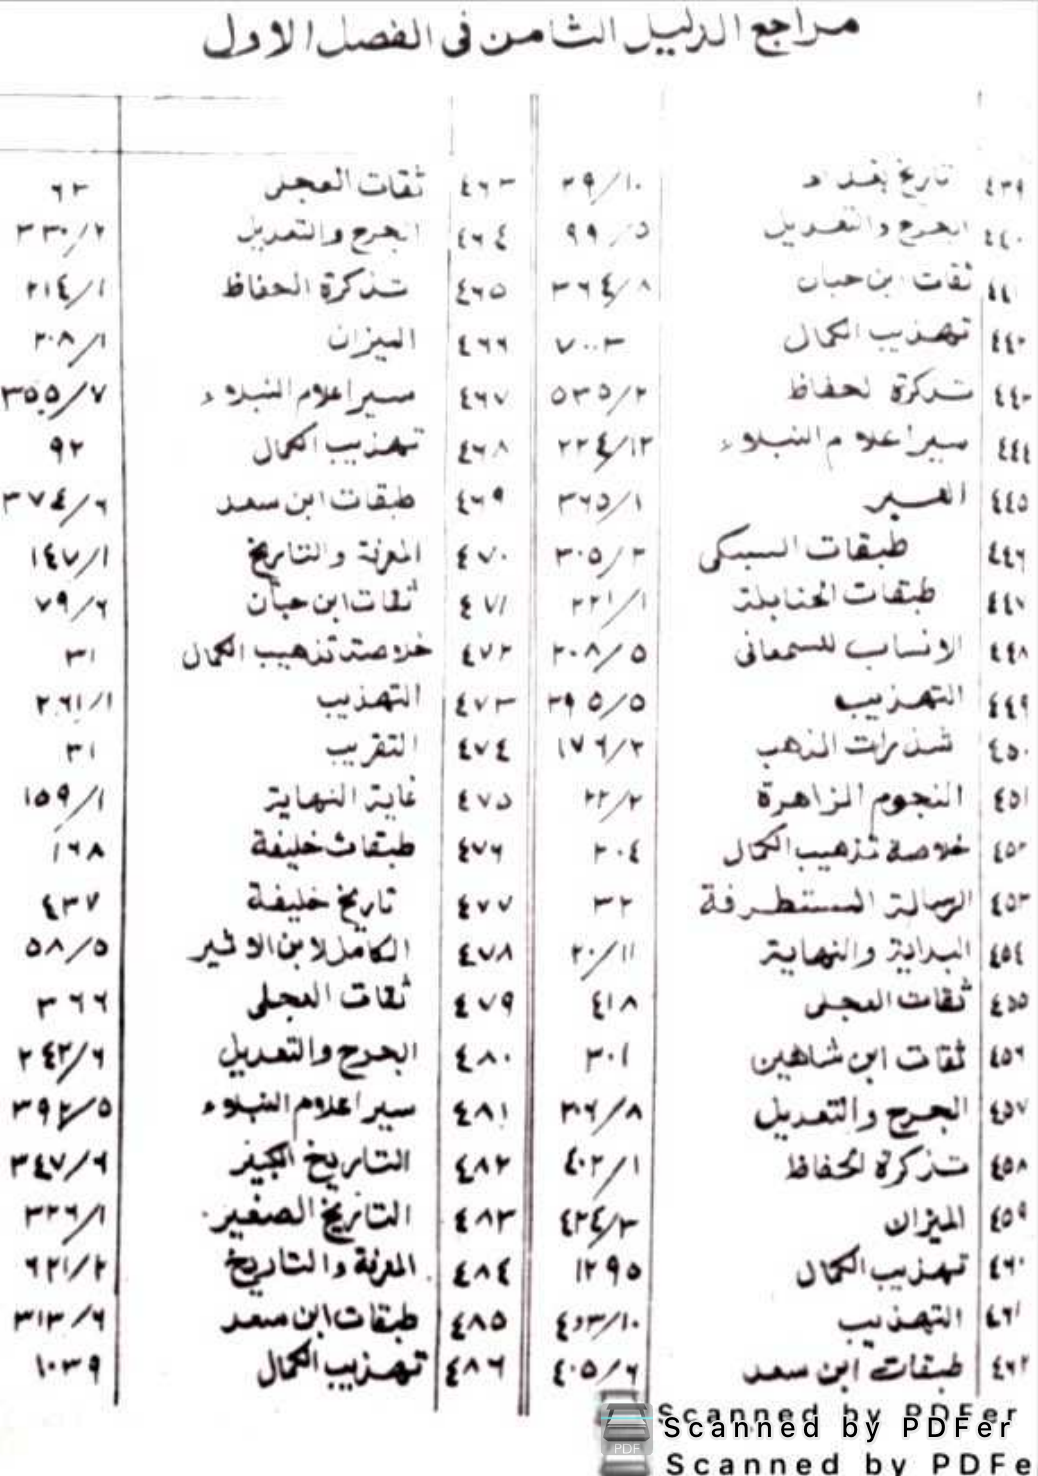 مراجع الدليل الثامن فى الفصل الاول
٤٣٩ تاريخ بغداد ٢٩/١٠ ٤٦٣ ثقات العجلى ٦٢
٤٤٠ الجرح والتعديل ٩٩/٥ ٤٦٤ الجرح والتعديل ٣٣٠/٢
٤٤١ ثقات ابن حبان ٣٦٤/٨ ٤٦٥ تذكرة الحفاظ ٢١٤/١
٤٤٢ تهذيب الكمال ٧٠٠٣ ٤٦٦ الميزان ٢٠٨/١
تذكرة لحفاظ ٥٣٥/٢ ٤٦٧ سير اعلام النبلاء ٣٥٥/٧
٤٤٤ سير اعلام النبلاء ٢٢٤/١٢ ٤٦٨ تهذيب الكمال ٩٢
٤٤٥ العبر ٣٦٥/١ ٤٦٩ طبقات ابن سعد ٣٧٤/٦
٤٤٦ طبقات السبكى ٣٠٥/٢ ٤٧٠ المعرفة والتاريخ ١٤٧/١
٤٤٧ طبقات الحنابلة ٢٢١/١ ٤٧١ ثقات ابن حبان ٧٩/٦
٤٤٨ الانساب للسمعانى ٢٠٨/٥ ٤٧٢ خلاصة تذهيب الكمال ٣١
٤٤٩ التهذيب ٢٩٥/٥ ٤٧٣ التهذيب ٢٦١/١
٤٥٠ شذرات الذهب ١٧٦/٢ ٤٧٤ التقريب ٣١
٤٥١ النجوم الزاهرة ٢٢/٢ ٤٧٥ غاية النهاية ١٥٩/١
٤٥٢ خلاصة تذهيب الكمال ٢٠٤ ٤٧٦ طبقات خليفة ١٦٨
٤٥٣ الرسالة المستطرفة ٣٢ ٤٧٧ تاريخ خليفة ٤٣٧
٤٥٤ البداية والنهاية ٢٠/١١ ٤٧٨ الكامل لابن الاثير ٥٨/٥
٤٥٥ ثقات العجلى ٤١٨ ٤٧٩ ثقات العجلى ٣٦٦
٤٥٦ ثقات ابن شاهين ٣٠١ ٤٨٠ الجرح والتعديل ٢٤٢/٦
٤٥٧ الجرح والتعديل ٣٠٦/٨ ٤٨١ سير اعلام النبلاء ٣٩٢/٥
٤٥٨ تذكرة الحفاظ ٤٠٢/١ ٤٨٢ التاريخ الكبير ٣٤٧/٦
٤٥٩ الميزان ٤٢٤/٣ ٤٨٣ التاريخ الصغير ٣٢٦/١
٤٦٠ تهذيب الكمال ١٢٩٥ ٤٨٤ المعرفة والتاريخ ٦٢١/٢
٤٦١ التهذيب ٤٠٣/١٠ ٤٨٥ طبقات ابن سعد ٣١٣/٦
٤٦٢ طبقات ابن سعد ٤٠٥/٦ ٤٨٦ تهذيب الكمال ١٠٣٩
Scanned by PDFer
Scanned by PDFer
PDF
Scanned by PDFe